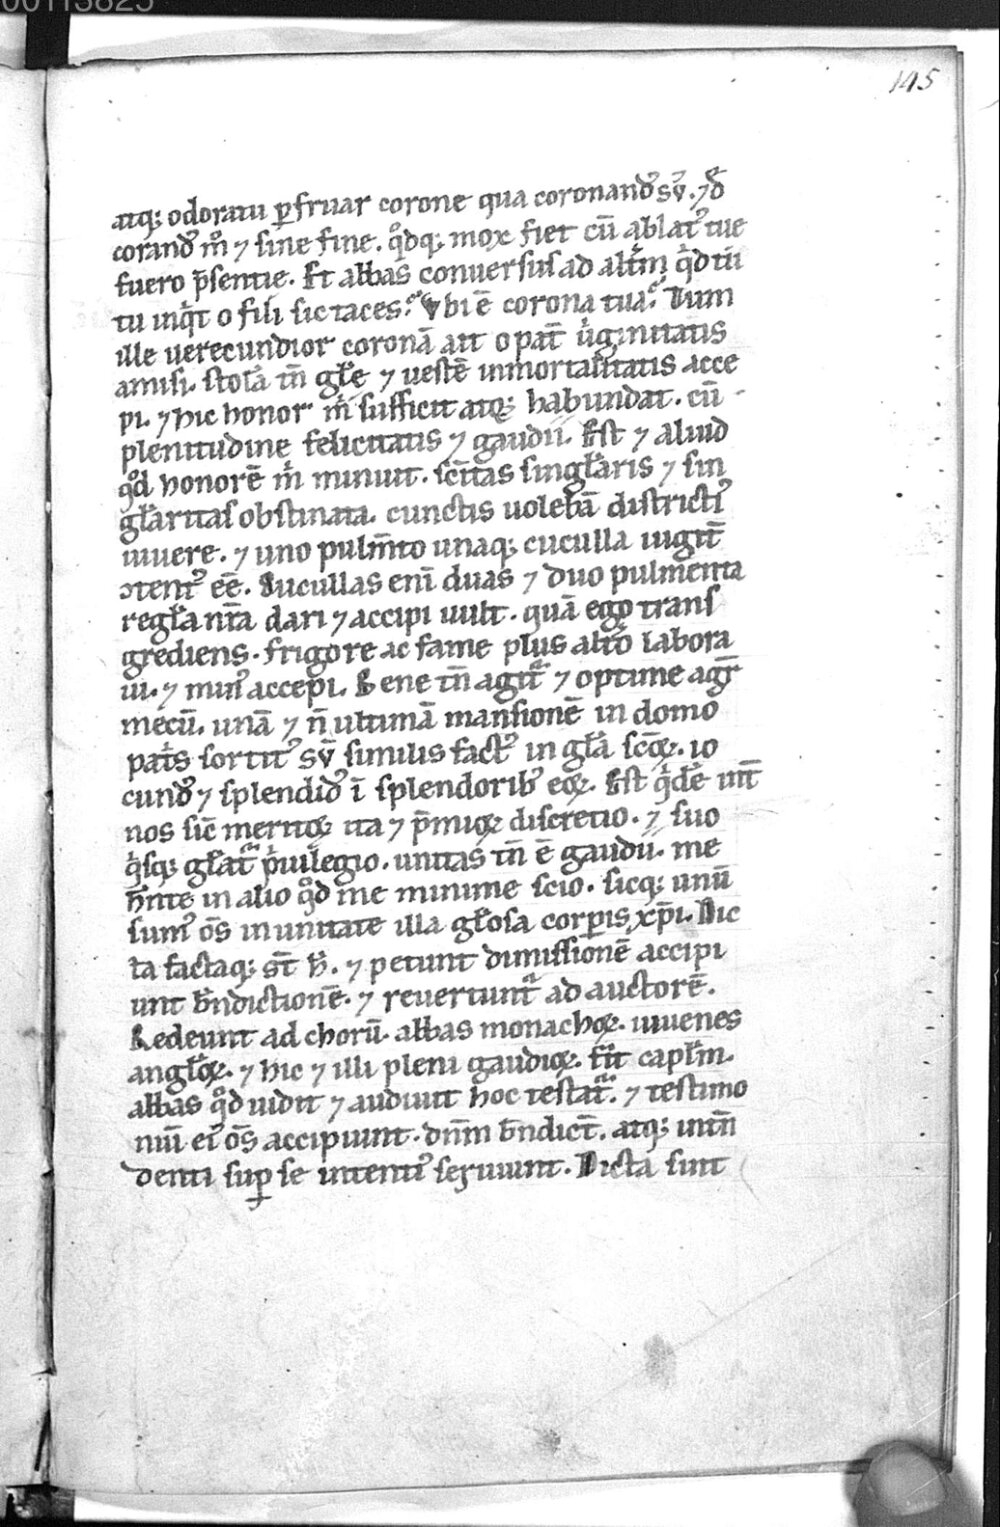 00113825
145
atq; odoratu ꝑfruar corone qua coronandꝰ sū. ⁊ de
corandꝰ m̊ ⁊ sine fine. qͦdq; mox fiet cū ablatꝰ tue
fuero p̄sentie. Et abbas conuersus ad altm̄
tu inqͥt o fili sic taces? Vbi ē corona tua? Tum
ille uerecundior coronā ait o pat̄ uͥginitatis
amisi. stolā tn̄ gl̄e ⁊ uestē inmortalitatis acce
pi. ⁊ hic honor mͥ sufficit atq; habundat. cū
plenitudine felicitatis ⁊ gaudii. Est ⁊ aliud
qͦd honorē mͥ minuit. sc̄itas singl̄aris ⁊ sin
gl̄aritas obstinata. cunctis uolebā districtiꝰ
uiuere. ⁊ uno pulm̄to unaq; cuculla iugit̄
ↄtentꝰ eē. Cucullas eni duas ⁊ duo pulmenta
regl̄a nr̄a dari ⁊ accipi uult. quā ego trans
grediens. frigore ac fame plus alio labora
ui. ⁊ minꝰ accepi. Bene tn̄ agitᷣ ⁊ optime agr̄
mecū. unā ⁊ n̄ ultimā mansionē in domo
patͥs sortitꝰ sū similis factꝰ in gl̄a sc̄oꝝ. io
cundꝰ ⁊ splendidꝰ ī splendoribꝰ eoꝝ. Est qͥdē int̄
nos sic̄ meritoꝝ ita ⁊ p̄mioꝝ discretio. ⁊ suo
qͥsq; gl̄atᷣ pͥuilegio. unitas tn̄ ē gaudii. me
hn̄te in alio qͦd me minime scio. sicq; unū
sumꝰ os̄ in unitate illa gl̄osa corꝑis xp̄i. Dic
ta factaq; st̄ h̄. ⁊ petunt dimissionē accipi
unt bn̄dictionē. ⁊ reuertuntᷣ ad auctorē.
Redeunt ad chorū. abbas monachoꝝ. iuuenes
angl̄oꝝ. ⁊ hic ⁊ illi pleni gaudioꝝ. fit capl̄m.
abbas qͦd uidit ⁊ audiuit hoc testatᷣ. ⁊ testimo
niū eiꝰ os̄ accipiunt. dn̄m bn̄dic̄t. atq; intn̄
denti suꝑ se intentiꝰ seruiunt. Dicta sunt